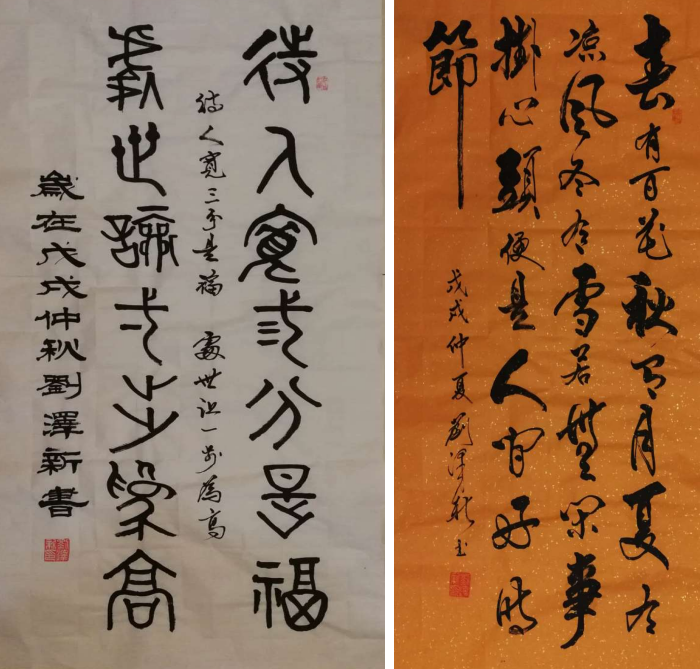 待人寬弎分是福
待人寬三分是福 處世讓一步為高
處世讓弌步為高
歲在戊戌仲秋劉澤新書
春有百花秋有月夏有
凉風冬有雪若無閑事
掛心頭便是人間好時
節
戊戌仲夏劉澤新書